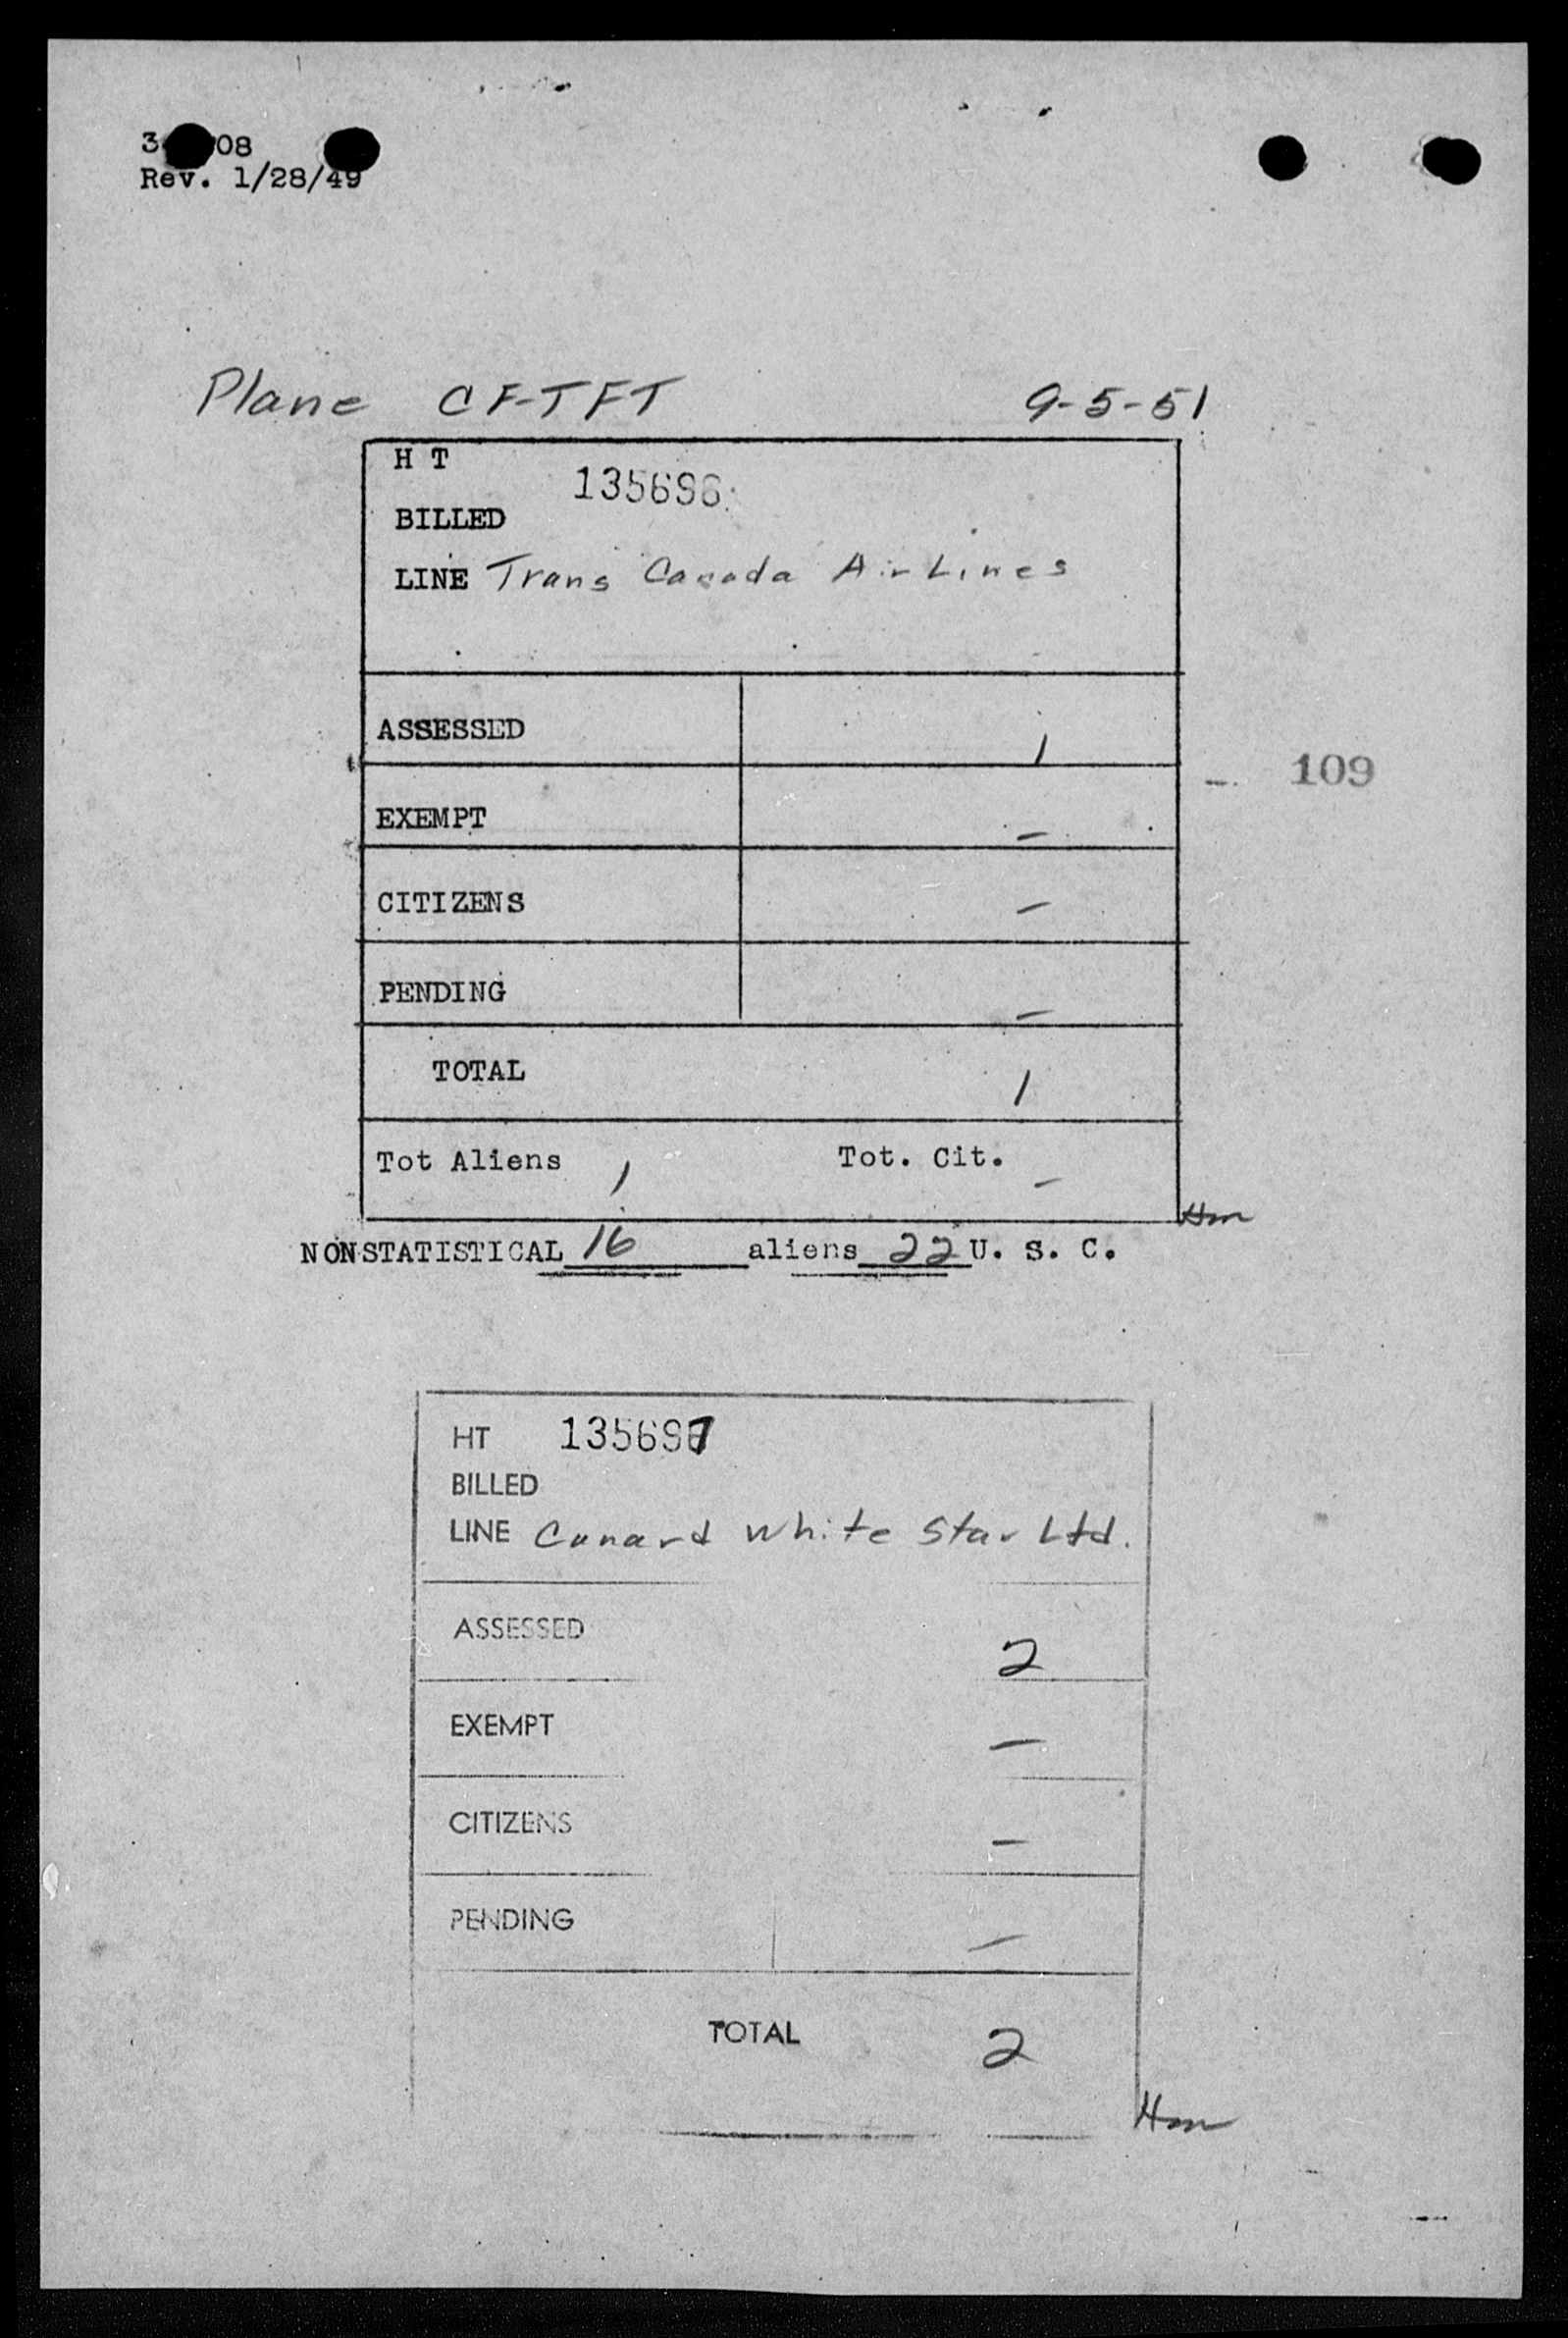 08
Rev. 1/28/49
Plane CF-TFT 9-5-51
H T
135696
BILLED
LINE Trans Canada Air Lines
ASSESSED 1
109
EXEMPT –
CITIZENS –
PENDING –
TOTAL 1
Tot Aliens 1 Tot. Cit. –
NONSTATISTICAL 16 aliens 22 U. S. C.
HT 135697
BILLED
LINE Cunard White Star Ltd.
ASSESSED 2
EXEMPT –
CITIZENS –
PENDING –
TOTAL 2